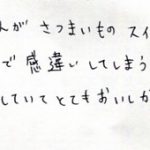 んが さつまいもの スイ
で 感違いしてしまう
していて とてもおいしか